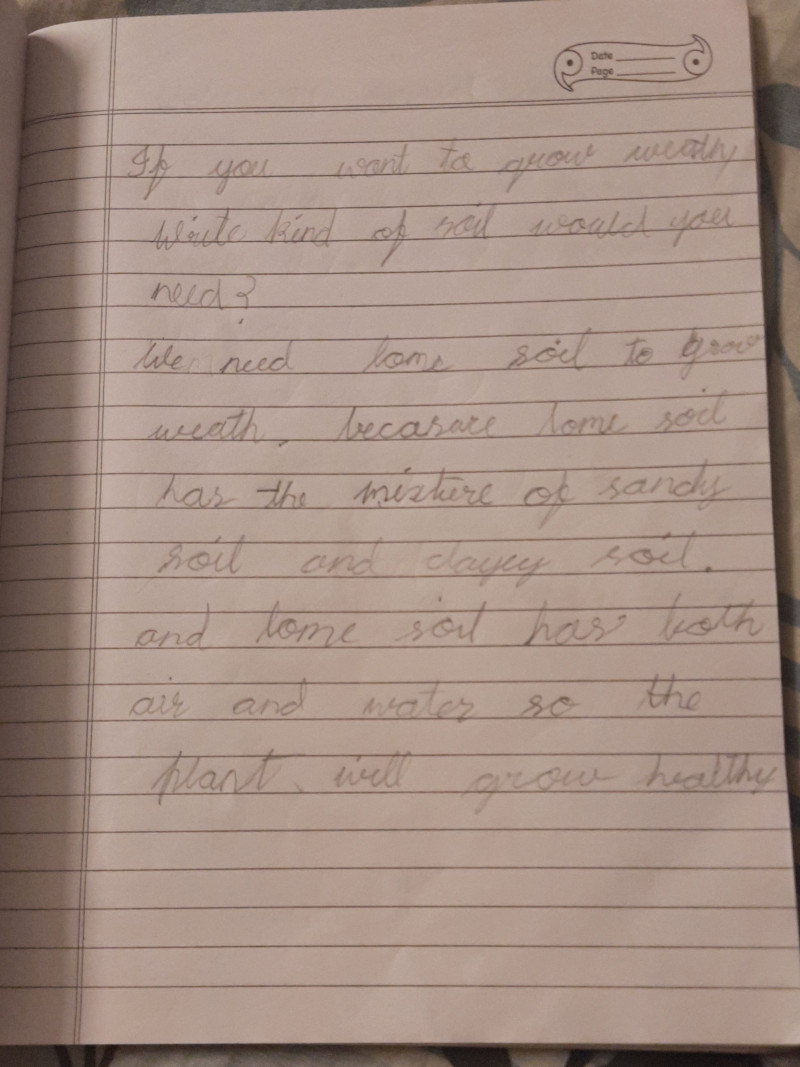 Date
Page
If you want to grow weathy
Write kind of soil would you
need?
We need lome soil to grow
weath. becasure lome soil
has the mixture of sandy
soil and clayey soil.
and lome soil has both
air and water so the
plant will grow healthy